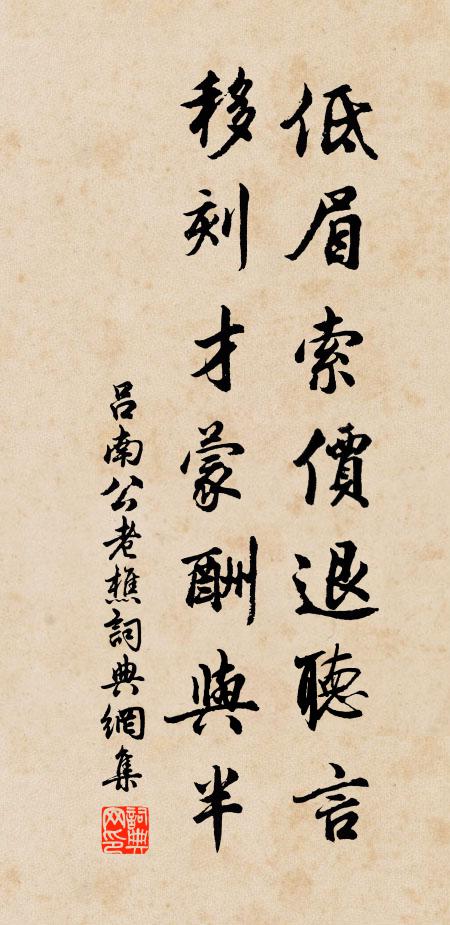 低眉索價退聽言
移刻才蒙酬與半
呂南公老樵詞典網集
詞典網印